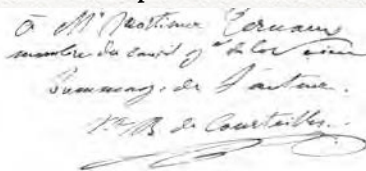 à Mr Mortimer Ternaux
membre du conseil gl de la Seine
hommage de l'auteur.
de Courteilles.